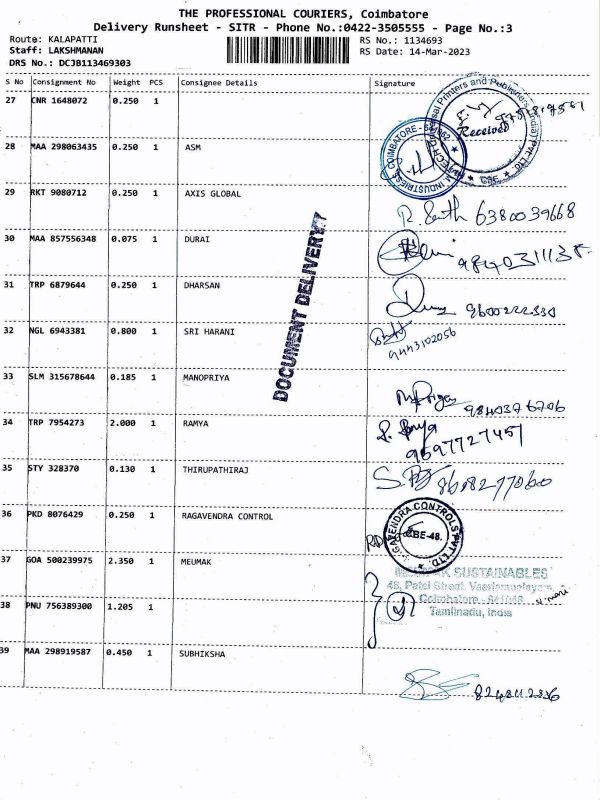 THE PROFESSIONAL COURIERS, Coimbatore
Delivery Runsheet - SITR - Phone No.:0422-3505555 - Page No.:3
Route: KALAPATTI
RS No.: 1134693
Staff: LAKSHMANAN
RS Date: 14-Mar-2023
DRS No.: DCJB113469303
S No Consignment No Weight PCS Consignee Details Signature
27 CNR 1648072 0.250 1
Received
28 MAA 298063435 0.250 1 ASM
29 RKT 9080712 0.250 1 AXIS GLOBAL
6380039668
30 MAA 857556348 0.075 1 DURAI
31 TRP 6879644 0.250 1 DHARSAN
9600222330
32 NGL 6943381 0.800 1 SRI HARANI
9443102056
DOCUMENT DELIVERY
33 SLM 315678644 0.185 1 MANOPRIYA
9840376706
34 TRP 7954273 2.000 1 RAMYA
9597727457
35 STY 328370 0.130 1 THIRUPATHIRAJ
36 PKD 8076429 0.250 1 RAGAVENDRA CONTROL
CBE-48.
37 GOA 500239975 2.350 1 MEUMAK
SUSTAINABLES
48, Patel Street
Coimbatore
Tamilnadu, India
38 PNU 756389300 1.205 1
39 MAA 298919587 0.450 1 SUBHIKSHA